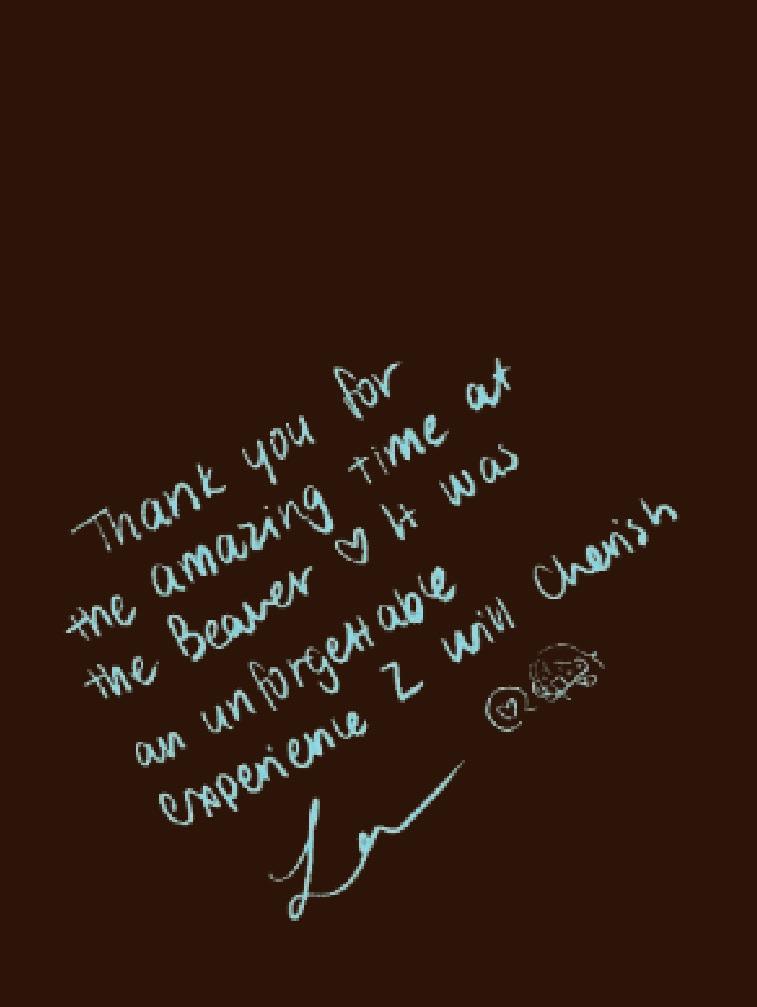 Thank you for
the amazing time at
the Beaver ♡ It was
an unforgettable
experience I will cherish